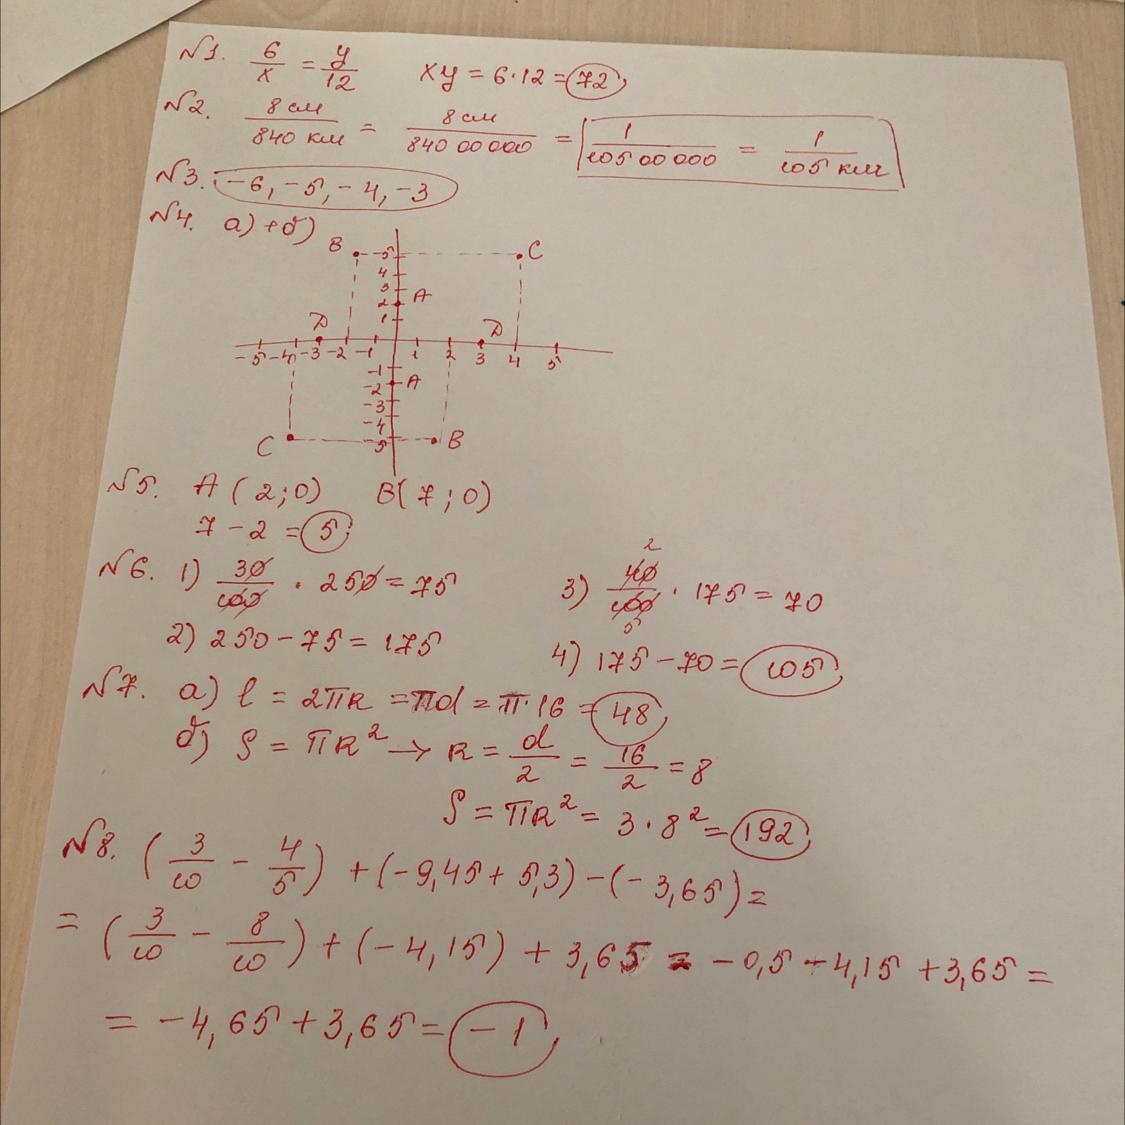 №1. 6/x = y/12 xy = 6·12 = 72
№2. 8 см/840 км = 8 см/840 00 000 = 1/105 00 000 = 1/105 км
№3. -6, -5, -4, -3
№4. а) + б)
B 5 C
4
3
2 A
1
D D
-5 -4 -3 -2 -1 1 2 3 4 5
-1
-2 A
-3
-4
C -5 B
№5. A (2; 0) B(7; 0)
7 - 2 = 5
№6. 1) 30/100 · 250 = 75
2) 250 - 75 = 175
2
3) 40/100 · 175 = 70
5
4) 175 - 70 = 105
№7. а) l = 2πR = πd = π·16 = 48
б) S = πR² → R = d/2 = 16/2 = 8
S = πR² = 3·8² = 192
№8. (3/10 - 4/5) + (-9,45 + 5,3) - (-3,65) =
= (3/10 - 8/10) + (-4,15) + 3,65 = -0,5 - 4,15 + 3,65 =
= -4,65 + 3,65 = -1